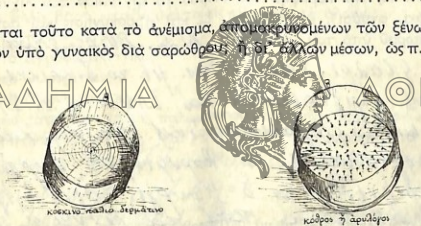 ται τοῦτο κατὰ τὸ ἀνέμισμα, ἀπομακρυνομένων τῶν ξένω
ν ὑπὸ γυναικὸς διὰ σαρώθρου; ἢ δι' ἄλλων μέσων, ὡς π.
ΑΔΗΜΙΑ ΑΘ
κόσκινο παλιὸ δερμάτινο
κόθρος ἢ ἀρυλόγος